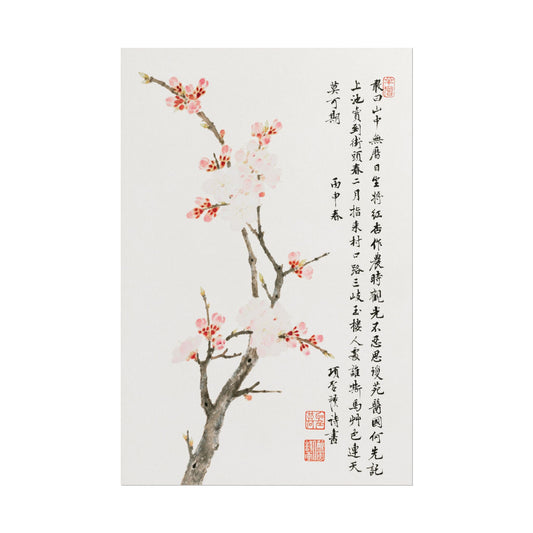 最曰山中無曆日生将紅杏作農時觀光不忍思瓊苑醫國何先記
上池賣到街頭春二月指来村口路三岐玉樓人去誰嘶馬艸色連天
莫可期
丙申春
詩書